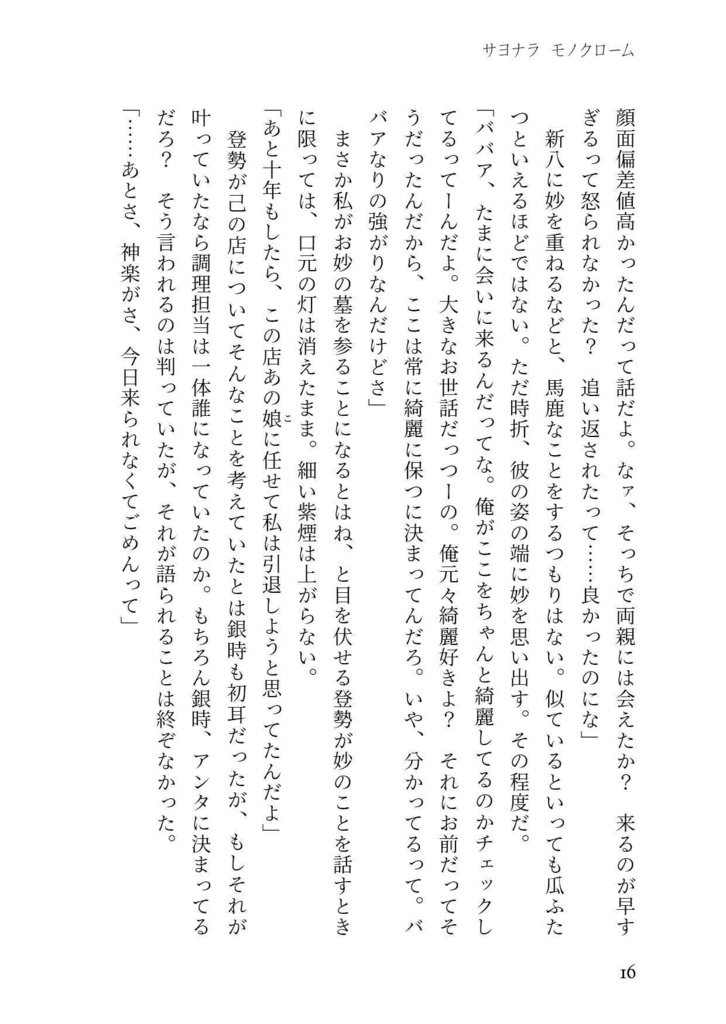 サヨナラ モノクローム
顔面偏差値高かったんだって話だよ。なァ、そっちで両親には会えたか? 来るのが早す
ぎるって怒られなかった? 追い返されたって……良かったのにな」
新八に妙を重ねるなどと、馬鹿なことをするつもりはない。似ているといっても瓜ふた
つといえるほどではない。ただ時折、彼の姿の端に妙を思い出す。その程度だ。
「ババア、たまに会いに来るんだってな。俺がここをちゃんと綺麗してるのかチェックし
てるってーんだよ。大きなお世話だっつーの。俺元々綺麗好きよ? それにお前だってそ
うだったんだから、ここは常に綺麗に保つに決まってんだろ。いや、分かってるって。バ
バアなりの強がりなんだけどさ」
まさか私がお妙の墓を参ることになるとはね、と目を伏せる登勢が妙のことを話すとき
に限っては、口元の灯は消えたまま。細い紫煙は上がらない。
「あと十年もしたら、この店あの娘に任せて私は引退しようと思ってたんだよ」
こ
登勢が己の店についてそんなことを考えていたとは銀時も初耳だったが、もしそれが
叶っていたなら調理担当は一体誰になっていたのか。もちろん銀時、アンタに決まってる
だろ? そう言われるのは判っていたが、それが語られることは終ぞなかった。
「……あとさ、神楽がさ、今日来られなくてごめんって」
16